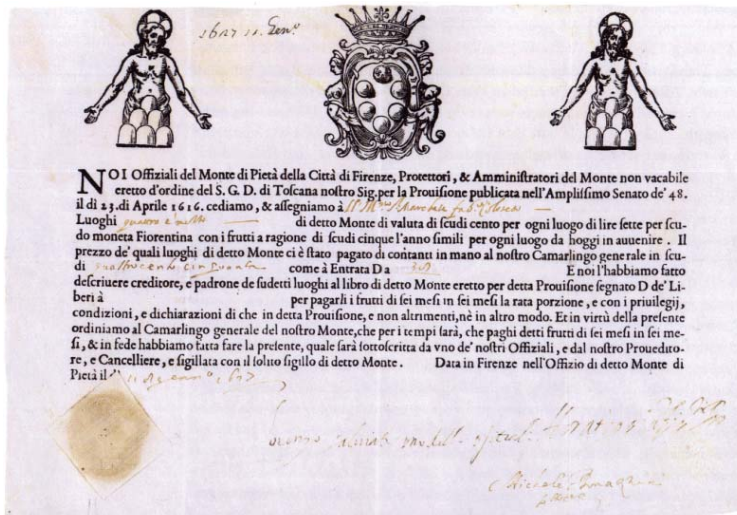 1627 11 Gen.º
NOI Offiziali del Monte di Pietà della Città di Firenze, Protettori, & Amministratori del Monte non vacabile
eretto d'ordine del S. G. D. di Toscana nostro Sig. per la Prouisione publicata nell'Amplissimo Senato de' 48.
il dì 23. di Aprile 1616. cediamo, & assegniamo à
Luoghi di detto Monte di valuta di scudi cento per ogni luogo di lire sette per scu-
do moneta Fiorentina con i frutti a ragione di scudi cinque l'anno simili per ogni luogo da hoggi in auuenire. Il
prezzo de' quali luoghi di detto Monte ci è stato pagato di contanti in mano al nostro Camarlingo generale in scu-
di come à Entrata D a E noi l'habbiamo fatto
descriuere creditore, e padrone de sudetti luoghi al libro di detto Monte eretto per detta Prouisione segnato D de' Li-
beri à per pagarli i frutti di sei mesi in sei mesi la rata porzione, e con i priuilegij,
condizioni, e dichiarazioni di che in detta Prouisione, e non altrimenti, nè in altro modo. Et in virtù della presente
ordiniamo al Camarlingo generale del nostro Monte, che per i tempi sarà, che paghi detti frutti di sei mesi in sei me-
si, & in fede habbiamo fatta fare la presente, quale sarà sottoscritta da vno de' nostri Offiziali, e dal nostro Proueditо-
re, e Cancelliere, e sigillata con il solito sigillo di detto Monte. Data in Firenze nell'Offizio di detto Monte di
Pietà il dì 11 di genn.º 1627